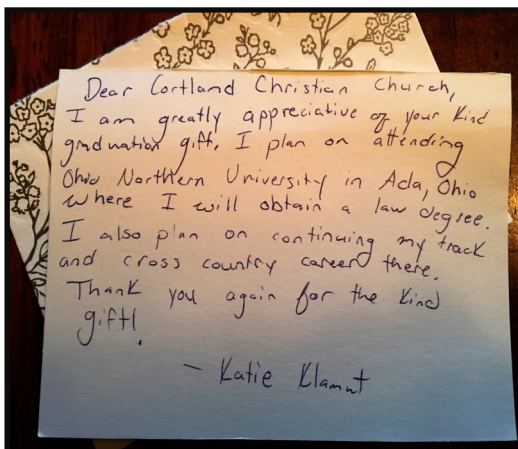 Dear Cortland Christian Church,
I am greatly appreciative of your kind
graduation gift. I plan on attending
Ohio Northern University in Ada, Ohio
where I will obtain a law degree.
I also plan on continuing my track
and cross country career there.
Thank you again for the kind
gift!
- Katie Klamut